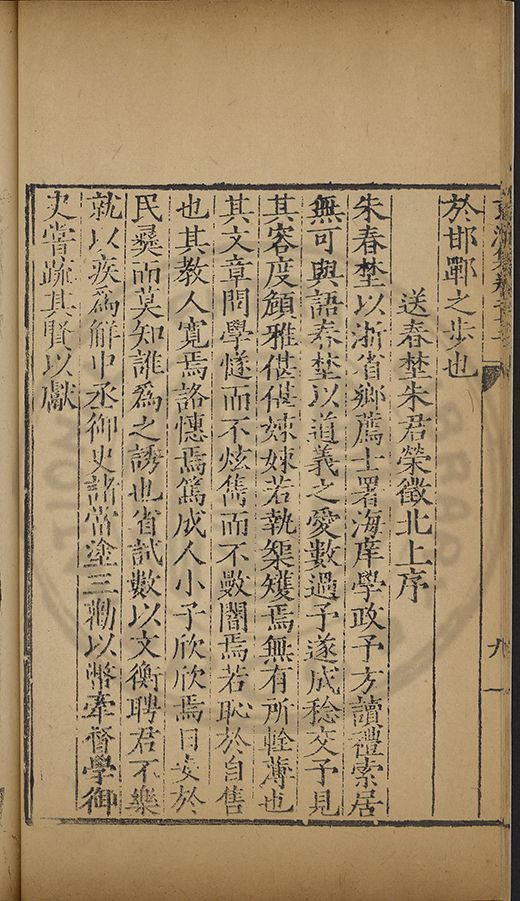 於邯鄲之步也
送春埜朱君榮徵北上序
朱春埜以浙省鄉薦士署海庠學政予方讀禮索居
無可與語春埜以道義之愛數過予遂成稔交予見
其容度頠雅偡偡娕娕若執榘矱焉無有所輇薄也
其文章問學邃而不炫雋而不斁闇焉若恥於自售
也其教人寬焉詻憓焉篤成人小子欣欣焉日妄於
民彝而莫知誰爲之誘也省試數以文衡聘君不樂
就以疾爲解中丞御史諸當塗三勸以幣牽督學御
史嘗疏其賢以獻
九